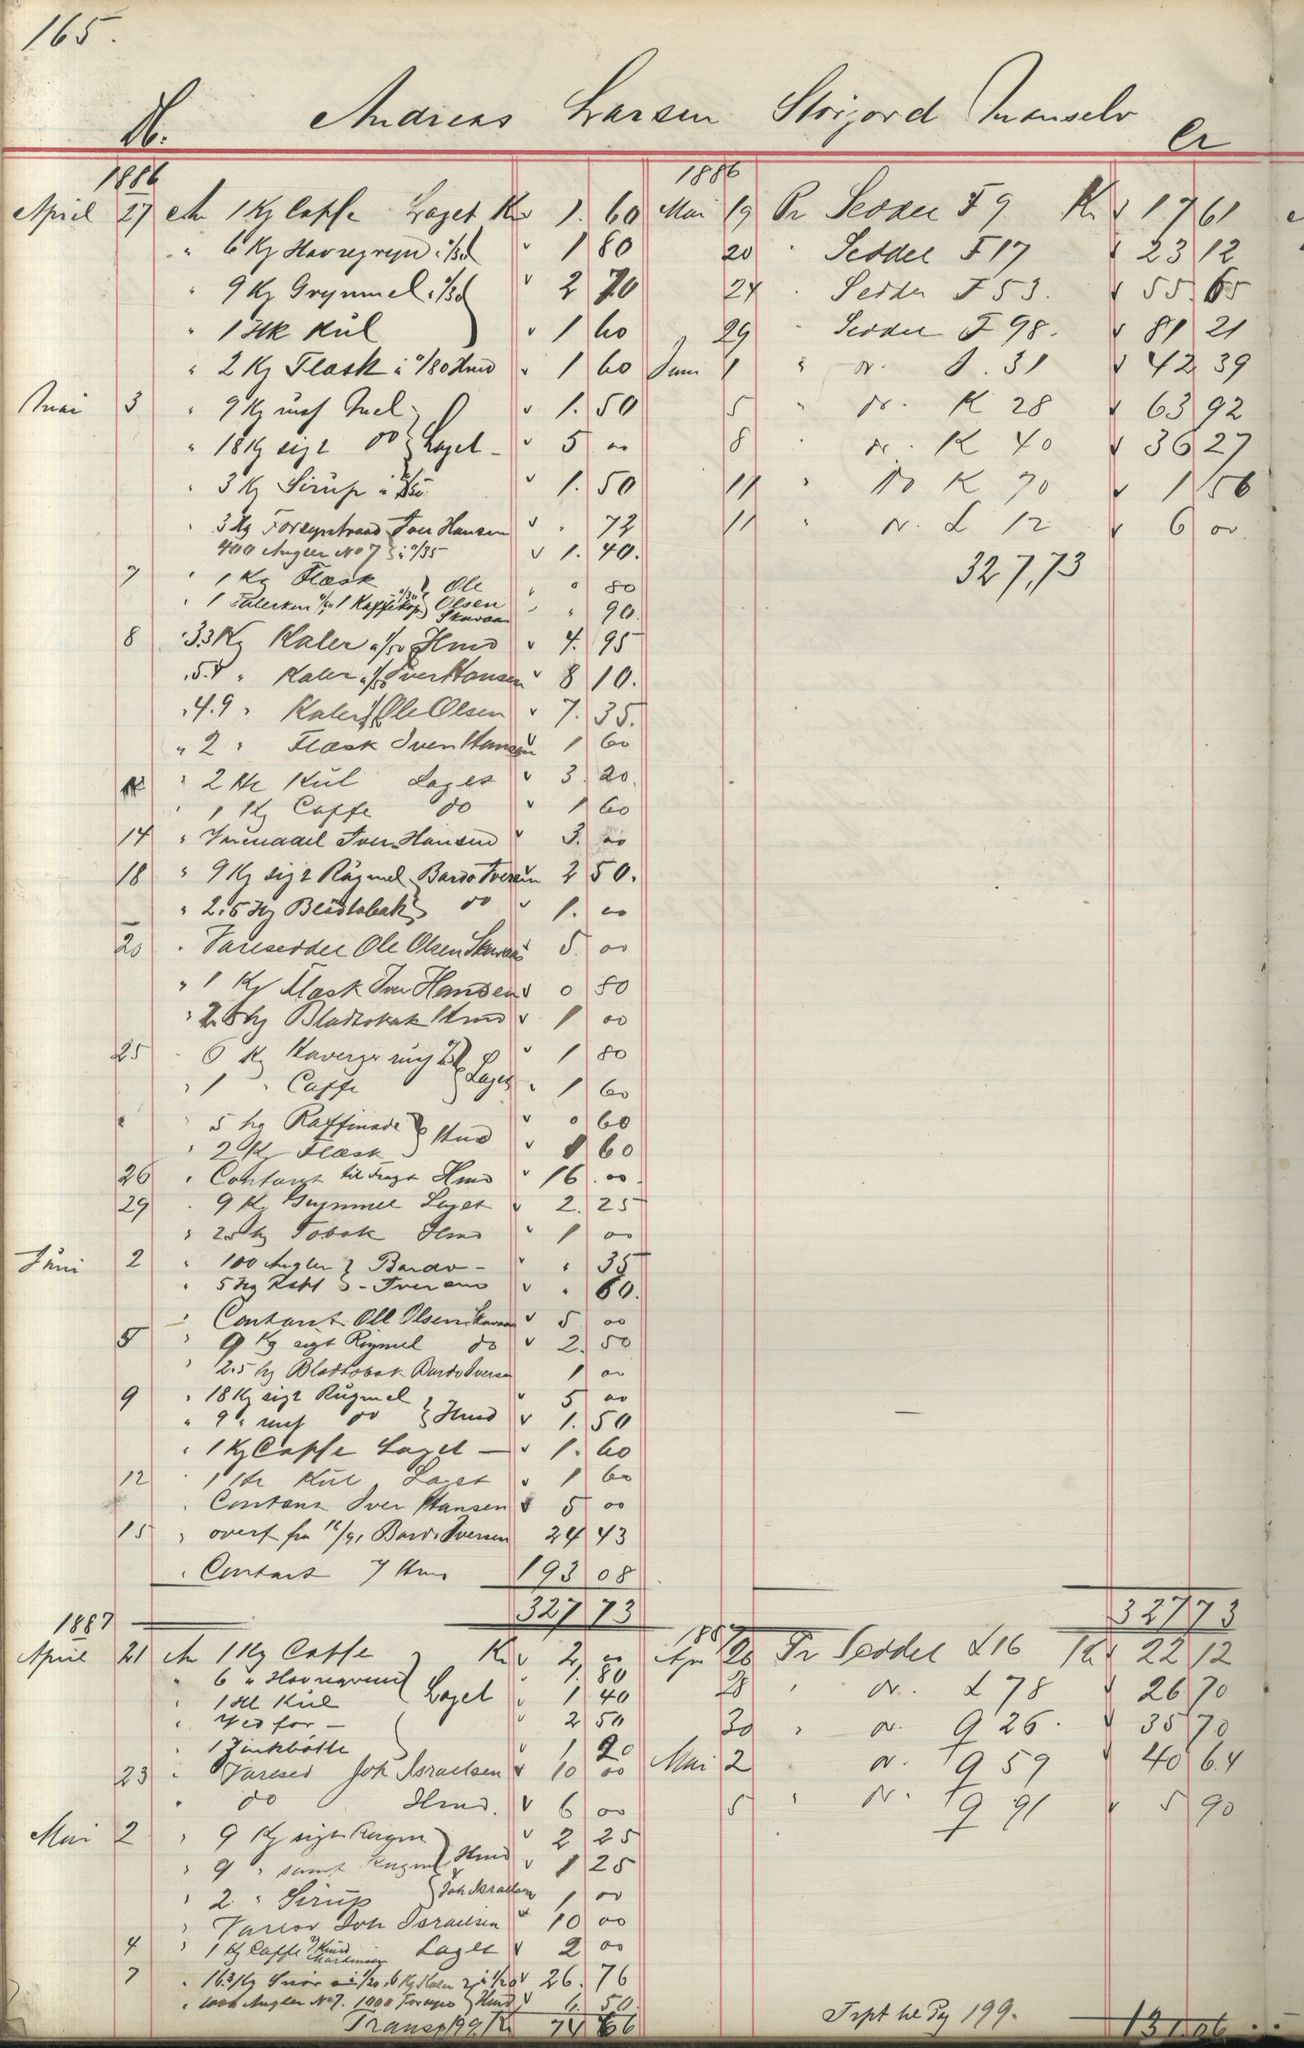 165.
Dt. Andreas Larsen Storjord Maanselv Cr
1886
April 27 An 1 Kg Caffe Laget Kr 1. 60
" 6 Kg Havregryn a 0/30 1 80
" 9 Kg Grynmel a 0/30 2 70
" 1 Hk Kul 1 60
" 2 Kg Flæsk a 0/80 Hmd 1 60
Mai 3 " 9 Kg usigt Mel 1. 50
" 18 Kg sigt do Laget - 5 00
" 3 Kg Sirup a 0/50 1. 50
" 3 Hg Forsyntraad Iver Hansen " 72
400 Angler No 7 a 0/35 1. 40.
7 " 1 Kg Flæsk Ole " 80
" 1 Talerken 1 Kaffekop Olsen Skavaas " 90
8 " 3.3 Kg Kaler a 1/50 Hmd 4. 95
" 5.4 " Kaler a 1/50 Iver Hansen 8 10.
" 4.9 " Kaler 1/50 Ole Olsen 7. 35.
" 2 " Flæsk Iver Hansen 1 60
" 2 Hl Kul Laget 3. 20.
" 1 Kg Caffe do 1 60
14 " Iver Hansen 3. 00
18 " 9 Kg sigt Rugmel Bardo Iversen 2 50.
" 2.5 Hg Bladtobak do 1. 00
20 " Varesedde Ole Olsen Skavaas 5. 00
" 1 Kg Flæsk Iver Hansen 0 80
" 2.5 hg Bladtobak Hmd 1 00
25 " 6 Kg Havregr 1 80
" 1 " Caffe Laget 1 60
" 5 hg Raffinade " 60
" 2 Kg Flæsk Hmd 1 60
26 " Contant til Fragt Hmd 16. 00.
29 " 9 Kg Grynmel Laget 2. 25
" 2.5 hg Tobak Hmd 1 00
Juni 2 " 100 Angler Bardo - " 35
" 5 hg Raff - Iversens " 60.
" Contant Ole Olsen Skavaas 5 00
5 " 9 Kg sigt Rugmel do 2. 50
" 2.5 hg Bladtobak Bardo Iversen 1 00
9 " 18 Kg sigt Rugmel 5 00
" 9 " usigt do Hmd 1. 50
" 1 Kg Caffe Laget - 1. 60
12 " 1 Hl Kul Laget 1 60
" Contant Iver Hansen 5 00
15 " overf fra Bardo Iversen 24 43
" Contant Hmd 193 08
327 73
1886
Mai 19 Pr Seddel F 9 Kr 17 61
20 " Seddel F 17 23 12
24 " Seddel F 53. 55. 65
29 " Seddel F 98. 81 21
Juni 1 " do. J. 31 42 39
5 " do. K 28 63 92
8 " do. K 40 36 27
11 " do K 70 1 56
11 " do. L 12 6 00
327,73
327 73
1887
April 21 An 1 Kg Caffe Kr 2 00
" 6 " Havregryn 1. 80
" 1 Hl Kul Laget 1 40
" Ved for - 2 50
" 1 Zinkbøtte 1 20
23 " Varesed Joh Israelsen 10 00
" do Hmd. 6 00
Mai 2 " 9 Kg sigt Rugm 2 25
" 9 " samt Rugmel Hmd 1 25
" 2 " Sirup Joh Israelsen 1 00
" Varesed Joh Israelsen 10 00
4 " 1 Kg Caffe v/ Knud Martinsen Laget 2 00
7 " 16.3 Kg Snør a 1/20, 6 Kg Kaler a 1/20 26. 76
" 1000 Angler No 7. 1000 Hmd 6. 50.
Transp 199. Kr 74 66
1887
Apr 26 Pr Seddel L 16 Kr 22 12
28 " do. L 78 26 70
30 " do. Q 26. 35 70
Mai 2 " do. Q 59 40 64
5 " do. Q 91 5 90
Trpt til Pg 199. 131.06